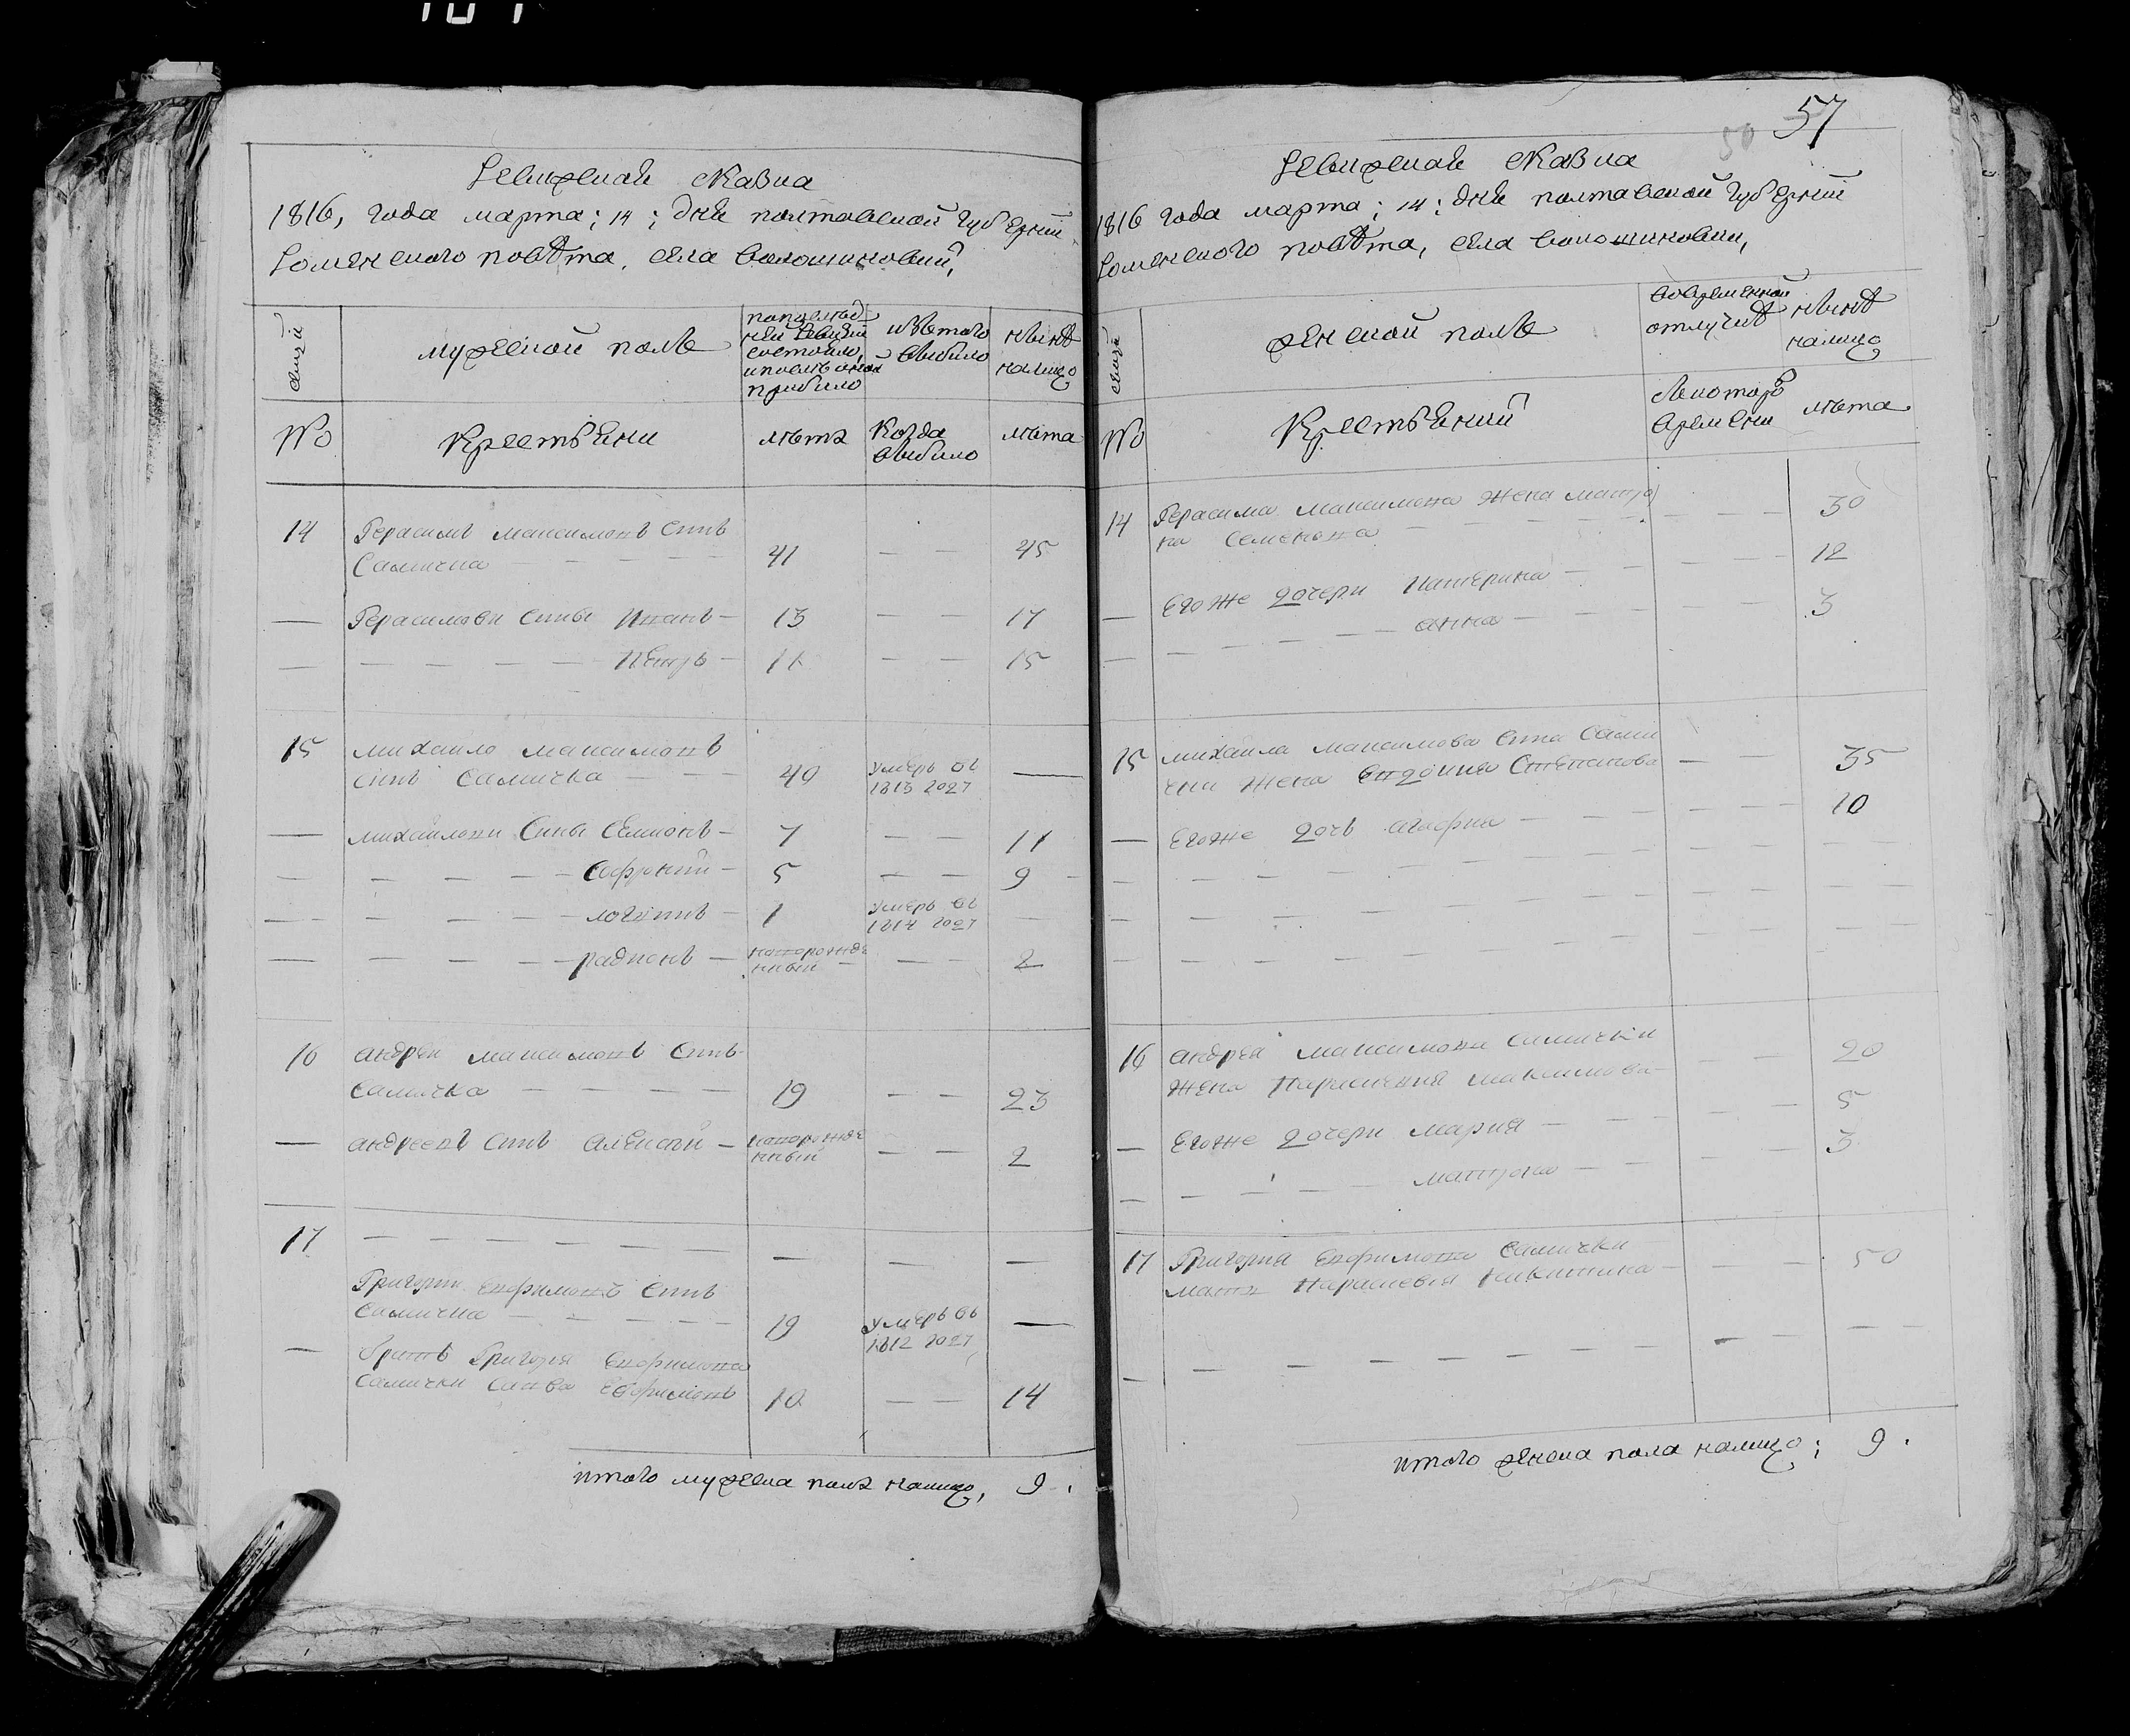 Ревизская сказка
1816, года марта; 14; дня полтавской губернии
Роменского повѣта, села волошиновки,
семей
мужеской полъ
по последней ревизии состояло, и после оной прибыло
изтого выбыло
нынѣ налицо
№
Крестьяне
лѣта
Когда выбыло
лѣта
14
Герасимъ максимовъ синъ
Самичка
41
45
Герасимови сины Иванъ
13
17
Петръ
11
15
15
михайло максимовъ
синъ Самичка
40
умеръ въ
1813 году
михайлови сины Семионъ
7
11
Софроний
5
9
логвинъ
1
умеръ въ
1814 году
радионъ
новорожде
нный
2
16
андрей максимовъ синъ
самичка
19
23
андреевъ синъ алексѣй
новорожде
нный
2
17
Григорий Ефримовъ синъ
Самичка
19
умеръ въ
1812 году
братъ Григория Ефримова
Самички Савва Ефримовъ
10
14
итого мужеска пола налицо, 9.
57
50
Ревизская сказка
1816 года марта; 14; дня полтавской губернии
Роменского повѣта, села волошиновки,
семей
женской полъ
вовременной отлучке
нынѣ налицо
№
Крестьяне
с которого времени
лѣта
14
Герасима максимова жена матро
на Семенова
30
Егоже дочери катерина
12
анна
3
15
михайла максимова сина Сами
чки жена Евдокия Степанова
35
Егоже дочь агафия
10
16
андрея максимова самички
жена Парасковия максимова
20
Егоже дочери мария
5
матрона
3
17
Григория Ефримова Самички
мати Парасковия Никитина
50
итого женска пола налицо; 9.